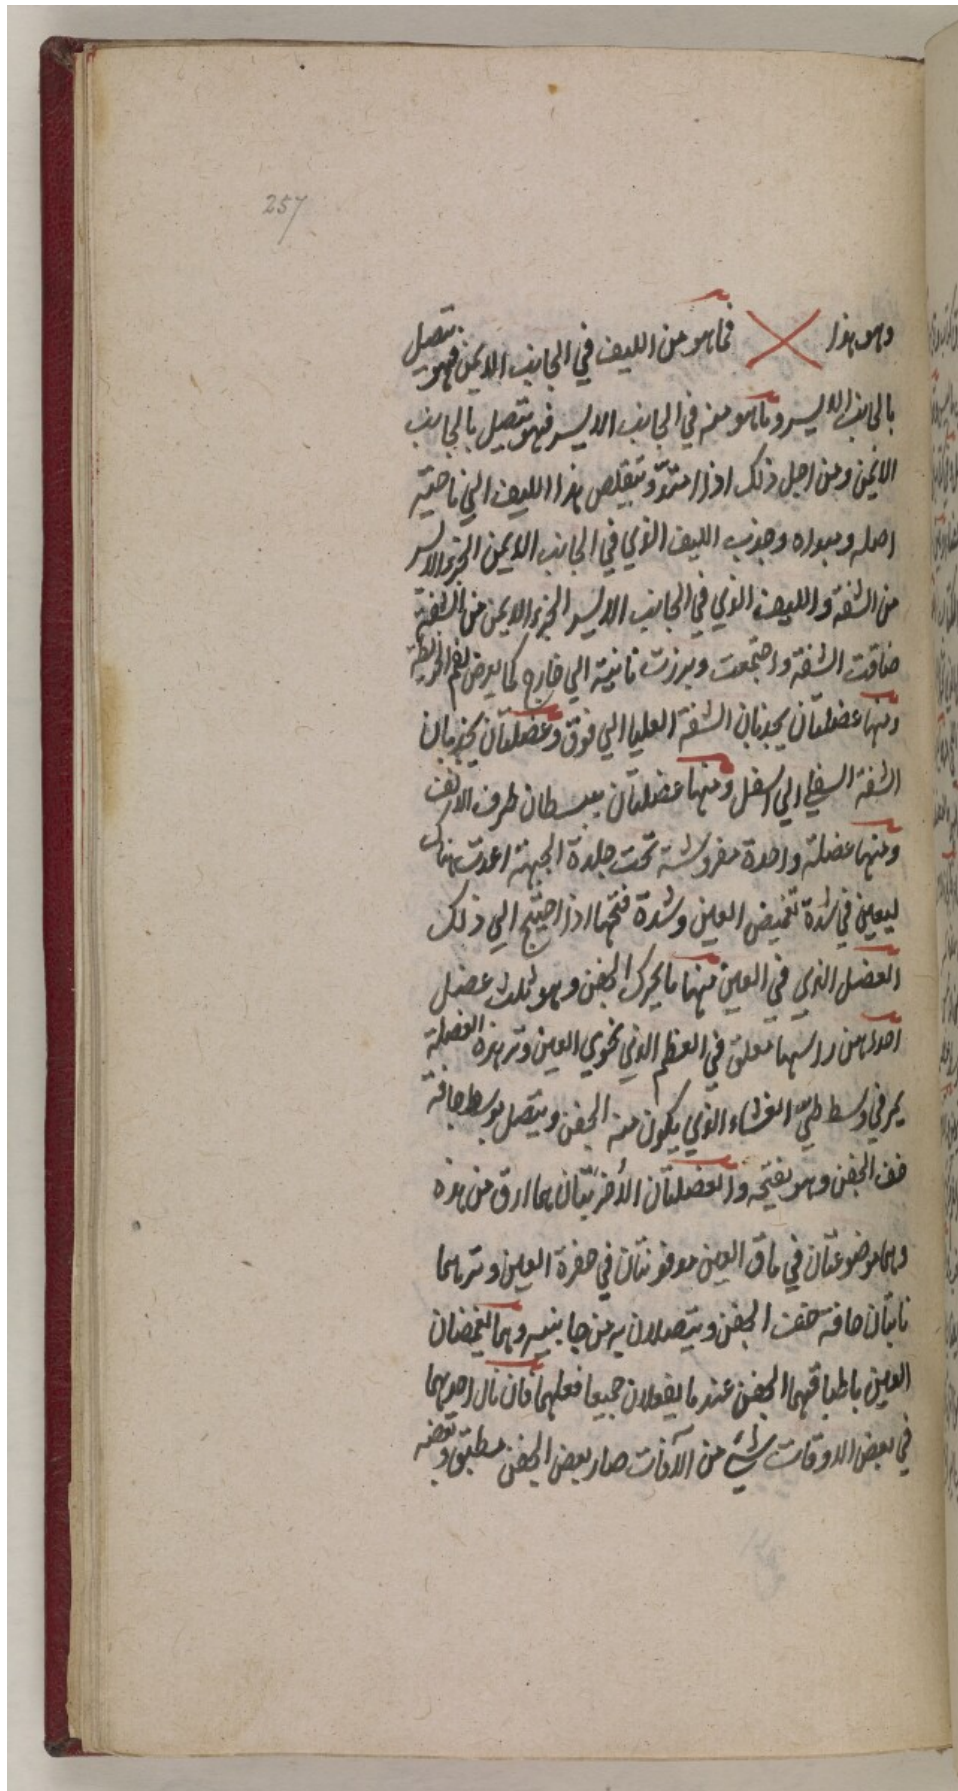 257
وهو هذا فما هو من الليف في الجانب الايمن فهو يتصل
بالجانب الايسر وما هو منه في الجانب الايسر فهو يتصل بالجانب
الايمن ومن اجل ذلك اذا امتدّ وتقلص هذا الليف الي ناحية
اصله ومبداه وجذب الليف الذي في الجانب الايمن الجزء الايسر
من الشفة والليف الذي في الجانب الايسر الجزء الايمن من الشفة
ضاقت الشفة واجتمعت وبرزت ناتية الي خارج كما يعرض لفم الخريطة
ومنها عضلتان يجذبان الشفة العليا الي فوق وعضلتان يجذبان
الشفة السفلي الي اسفل ومنها عضلتان يبسطان طرف الانف
ومنها عضلة واحدة مفروشة تحت جلدة الجبهة اعدت هناك
ليعين في شدة تغميض العين وشدة فتحها اذا احتيج الي ذلك
العضل الذي في العين منها ما يحرك الجفن وهو ثلث عضل
احداهن راسها معلق في العظم الذي يحوي العين وتر هذه العضلة
يمر في وسط طيّ الغشاء الذي يكون منه الجفن ويتصل بوسط حافة
الجفن وهو يفتحه والعضلتان الأخريتان هما ارق من هذه
وهما موضوعتان في ماق العين مدفونتان في حفرة العين وترهما
ياتيان حافة الجفن ويتصلان به من جانبيه وهما يغمضان
العين باطباقهما الجفن عند ما يفعلان جميعا فعلهما فان نال احديهما
في بعض الاوقات شئ من الآفات صار بعض الجفن منطبق وبعضه